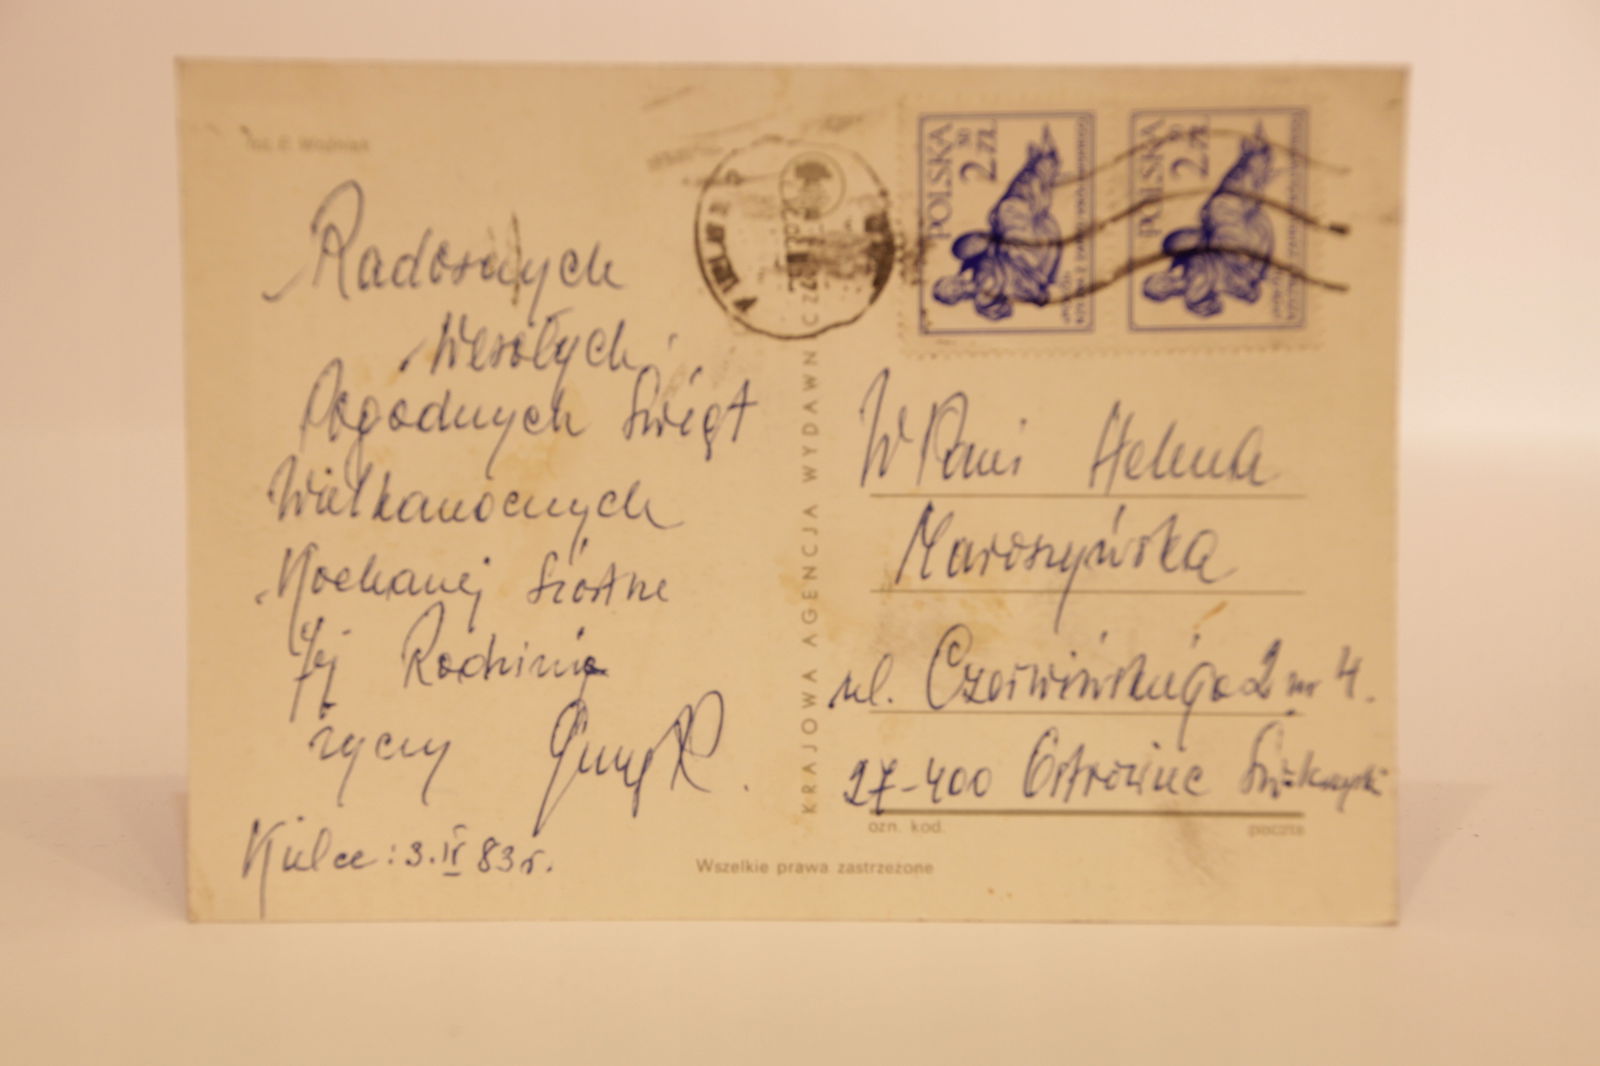 fot. P. Woźniak
Radosnych
Wesołych
Pogodnych Świąt
Wielkanocnych
Kochanej Siostrze
Jej Rodzinie
życzy
Kielce: 3.IV 83r.
KRAJOWA AGENCJA WYDAWNICZA
POLSKA
2 50 ZŁ
POLSKA
2 50 ZŁ
W Pani Helena
Maroszyńska
ul. Czerwińskiego 2 m 4.
27-400 Ostrowiec Świętokrzyski
ozn. kod. poczta
Wszelkie prawa zastrzeżone